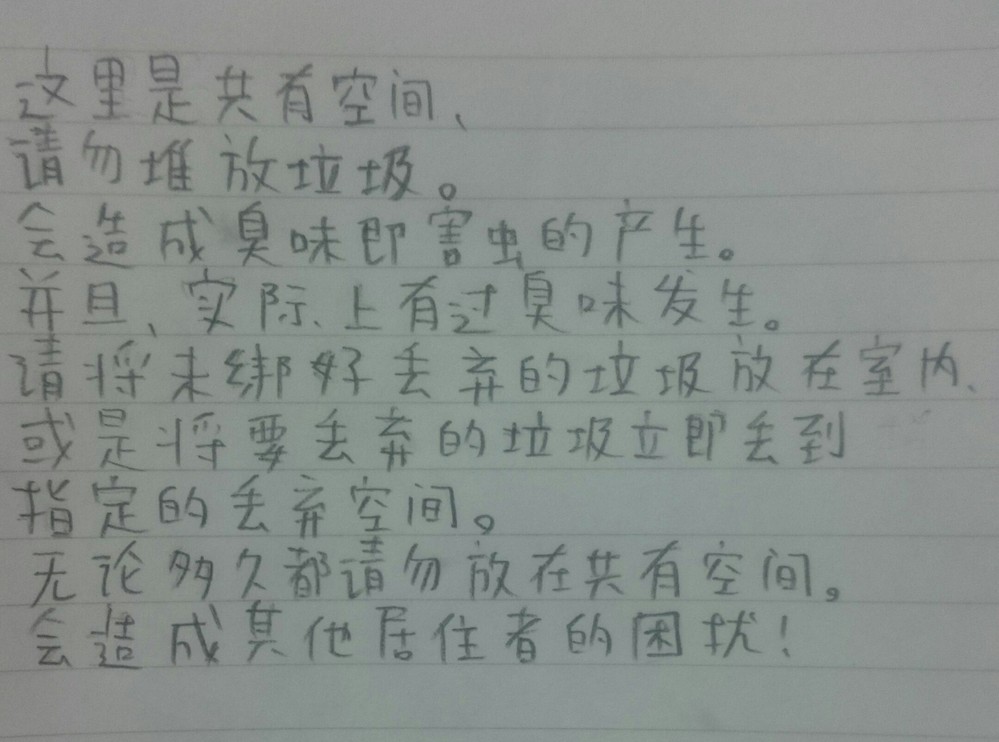 这里是共有空间、
请勿堆放垃圾。
会造成臭味即害虫的产生。
并且、实际上有过臭味发生。
请将未绑好丢弃的垃圾放在室内、
或是将要丢弃的垃圾立即丢到
指定的丢弃空间。
无论多久都请勿放在共有空间。
会造成其他居住者的困扰！